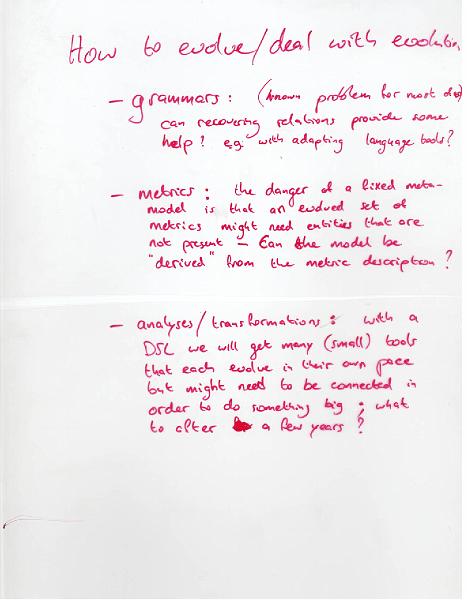 How to evolve/deal with evolution
- grammars : (known problem for most of us)
can recovering relations provide some
help? e.g. with adapting language tools?
- metrics : the danger of a fixed meta-
model is that an evolved set of
metrics might need entities that are
not present - Can the model be
"derived" from the metric description ?
- analyses/transformations : with a
DSL we will get many (small) tools
that each evolve in their own pace
but might need to be connected in
order to do something big ; what
to after a few years ?